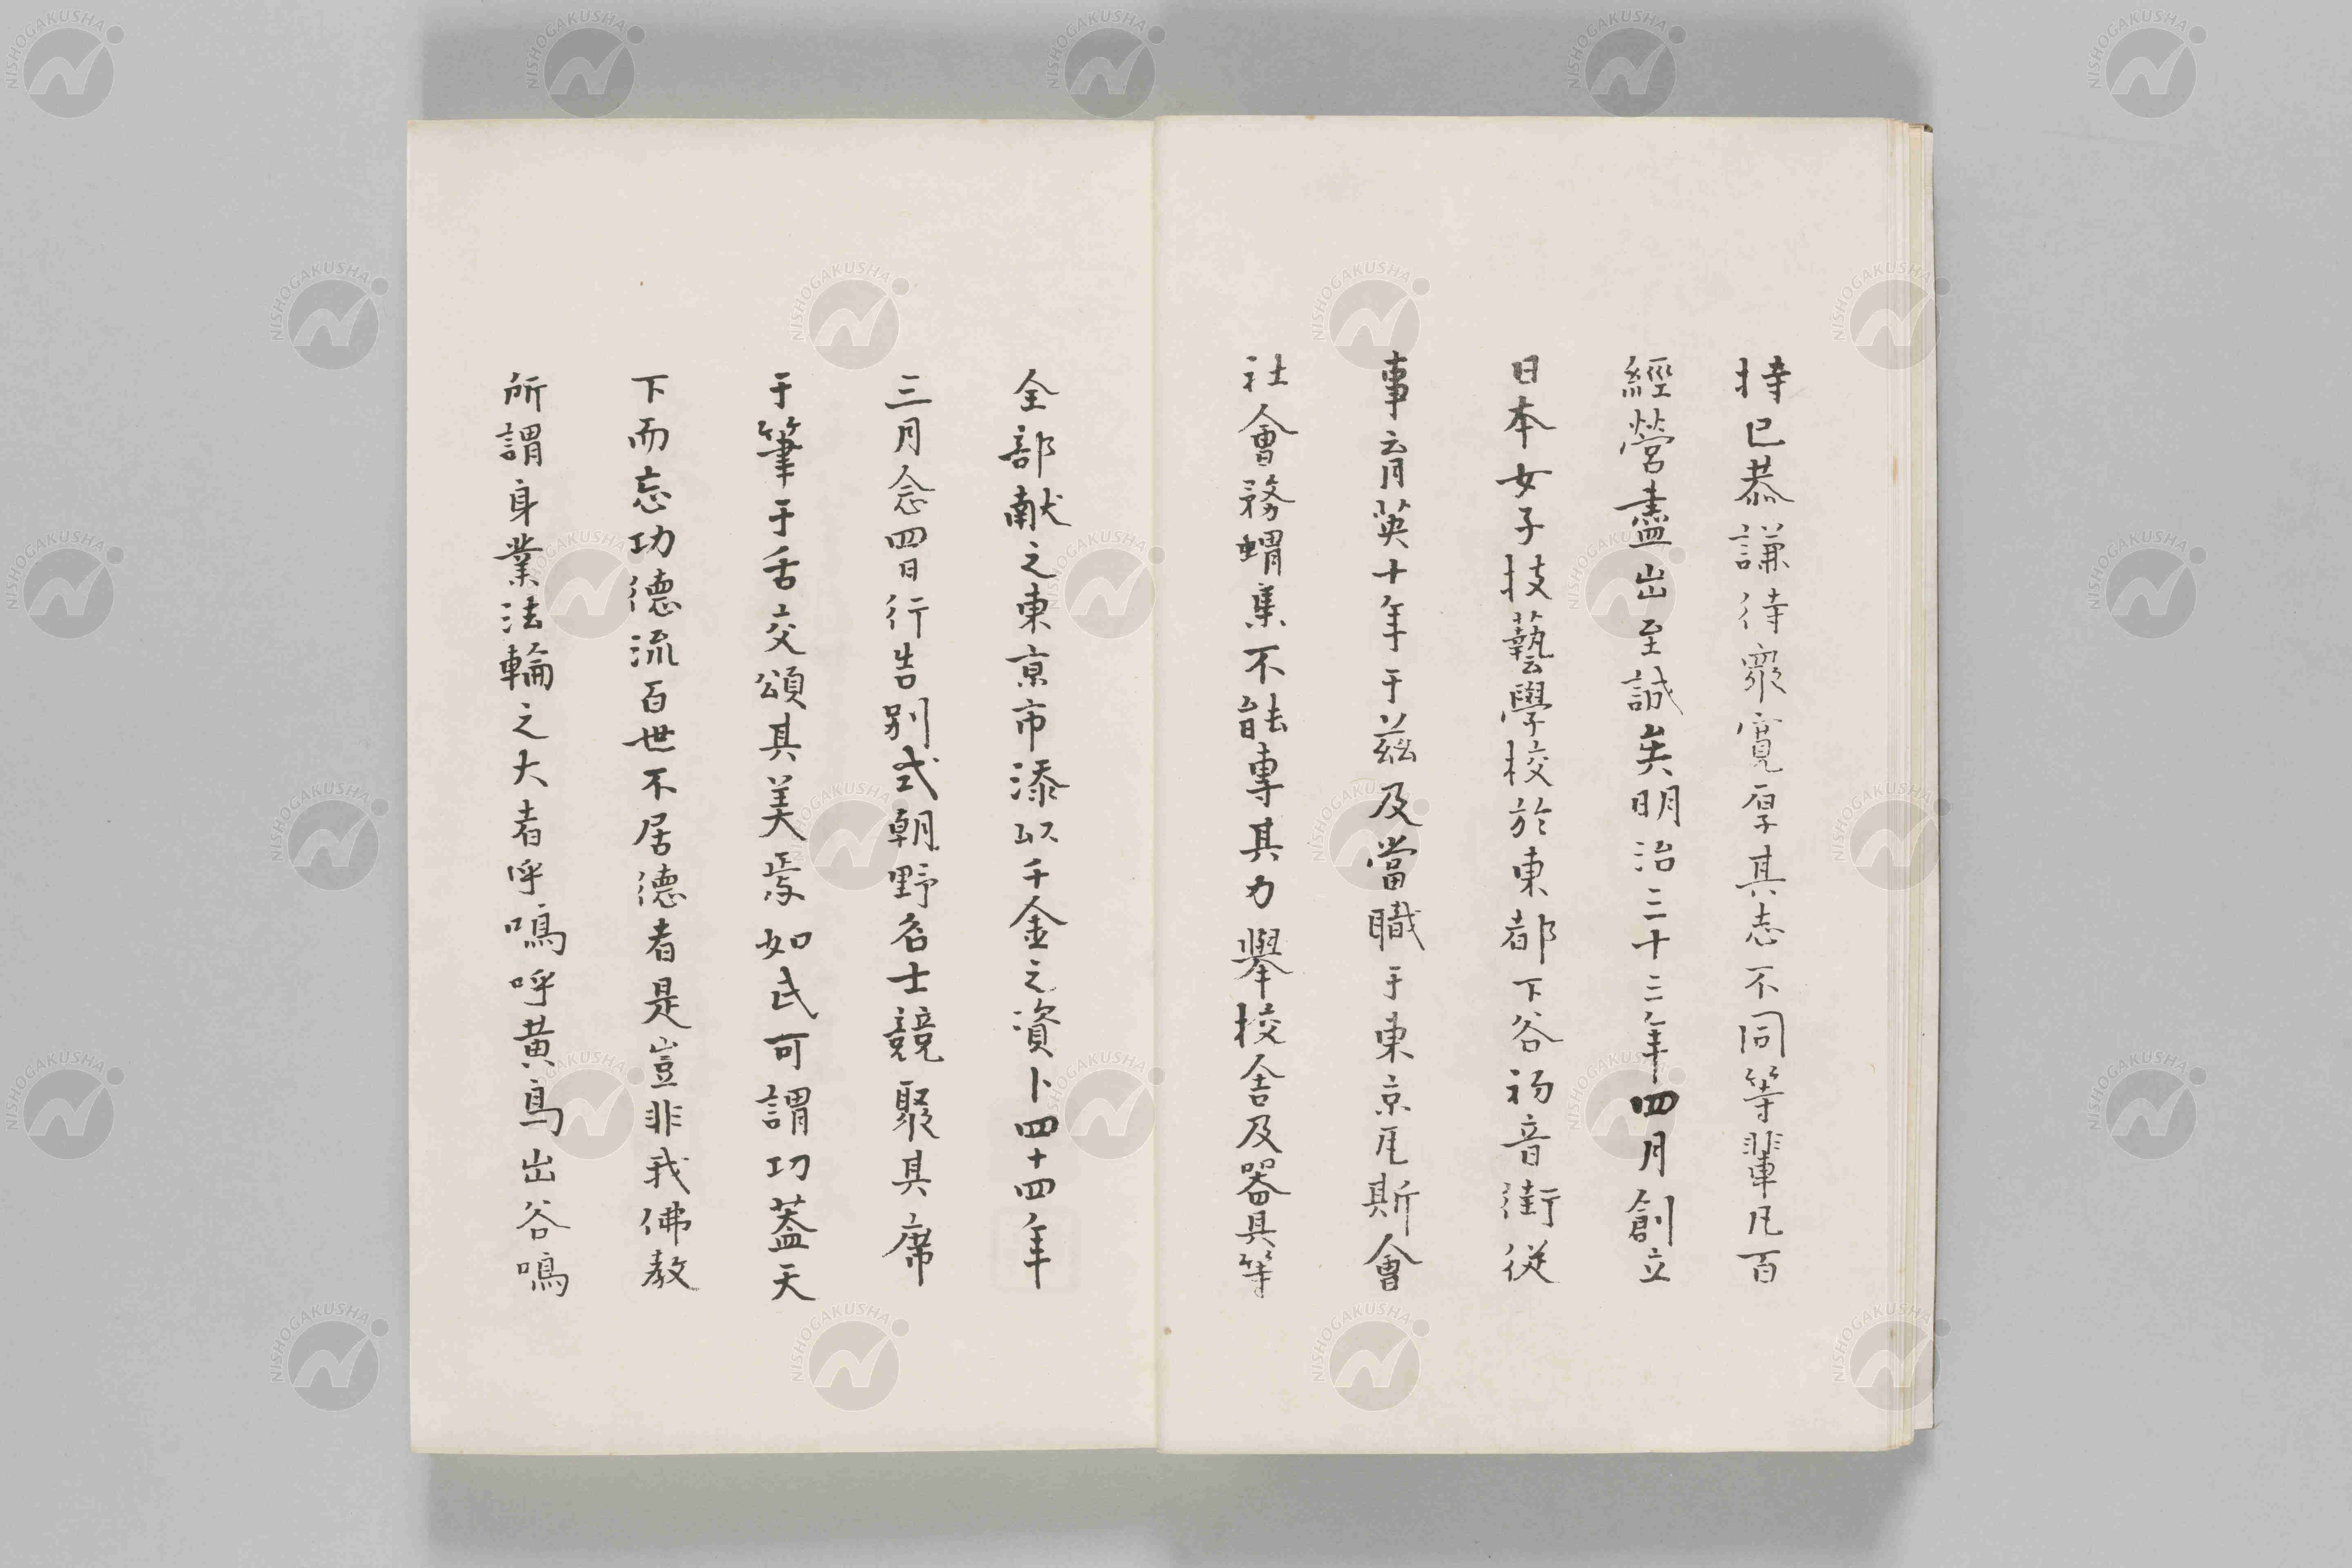 持已恭謙待衆寛厚其志不同等輩凡百
經營盡出至誠矣明治三十三年四月創立
日本女子技藝學校於東都下谷初音街従
事育英十年于茲及當職于東京瓦斯會
社會務蝟集不能專其力擧校舍及器具等
全部献之東京市添以千金之資卜四十四年
三月念四日行告別式朝野名士競聚其席
于筆于舌交頌其美焉如氏可謂功蓋天
下而忘功德流百世不居德者是豈非我佛教
所謂身業法輪之大者呼鳴呼黄鳥出谷鳴